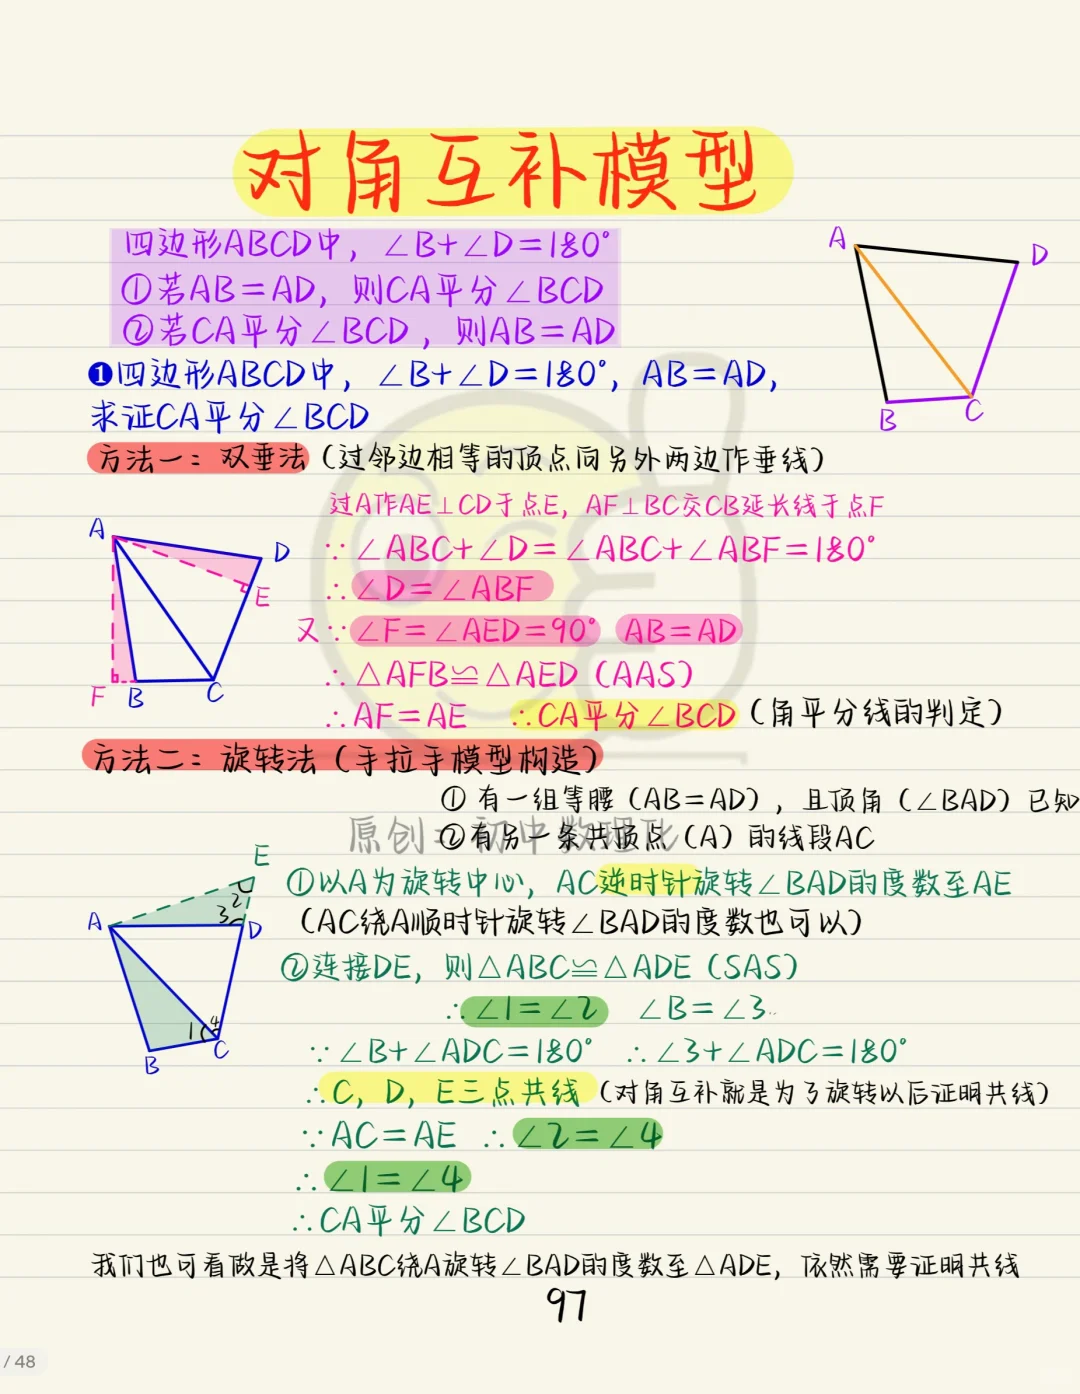 对角互补模型
四边形ABCD中，∠B+∠D=180°
①若AB=AD，则CA平分∠BCD
②若CA平分∠BCD，则AB=AD
A
D
B
C
❶四边形ABCD中，∠B+∠D=180°，AB=AD，
求证CA平分∠BCD
方法一：双垂法（过邻边相等的顶点向另外两边作垂线）
过A作AE⊥CD于点E，AF⊥BC交CB延长线于点F
A
D
E
F
B
C
∵∠ABC+∠D=∠ABC+∠ABF=180°
∴∠D=∠ABF
又∵∠F=∠AED=90° AB=AD
∴△AFB≌△AED（AAS）
∴AF=AE ∴CA平分∠BCD（角平分线的判定）
方法二：旋转法（手拉手模型构造）
①有一组等腰（AB=AD），且顶角（∠BAD）已知
②有另一条共顶点（A）的线段AC
原创：初中数理化
E
2
3
A
D
1
4
B
C
①以A为旋转中心，AC逆时针旋转∠BAD的度数至AE
（AC绕A顺时针旋转∠BAD的度数也可以）
②连接DE，则△ABC≌△ADE（SAS）
∴∠1=∠2 ∠B=∠3
∵∠B+∠ADC=180° ∴∠3+∠ADC=180°
∴C，D，E三点共线（对角互补就是为了旋转以后证明共线）
∵AC=AE ∴∠2=∠4
∴∠1=∠4
∴CA平分∠BCD
我们也可看做是将△ABC绕A旋转∠BAD的度数至△ADE，依然需要证明共线
97
/ 48